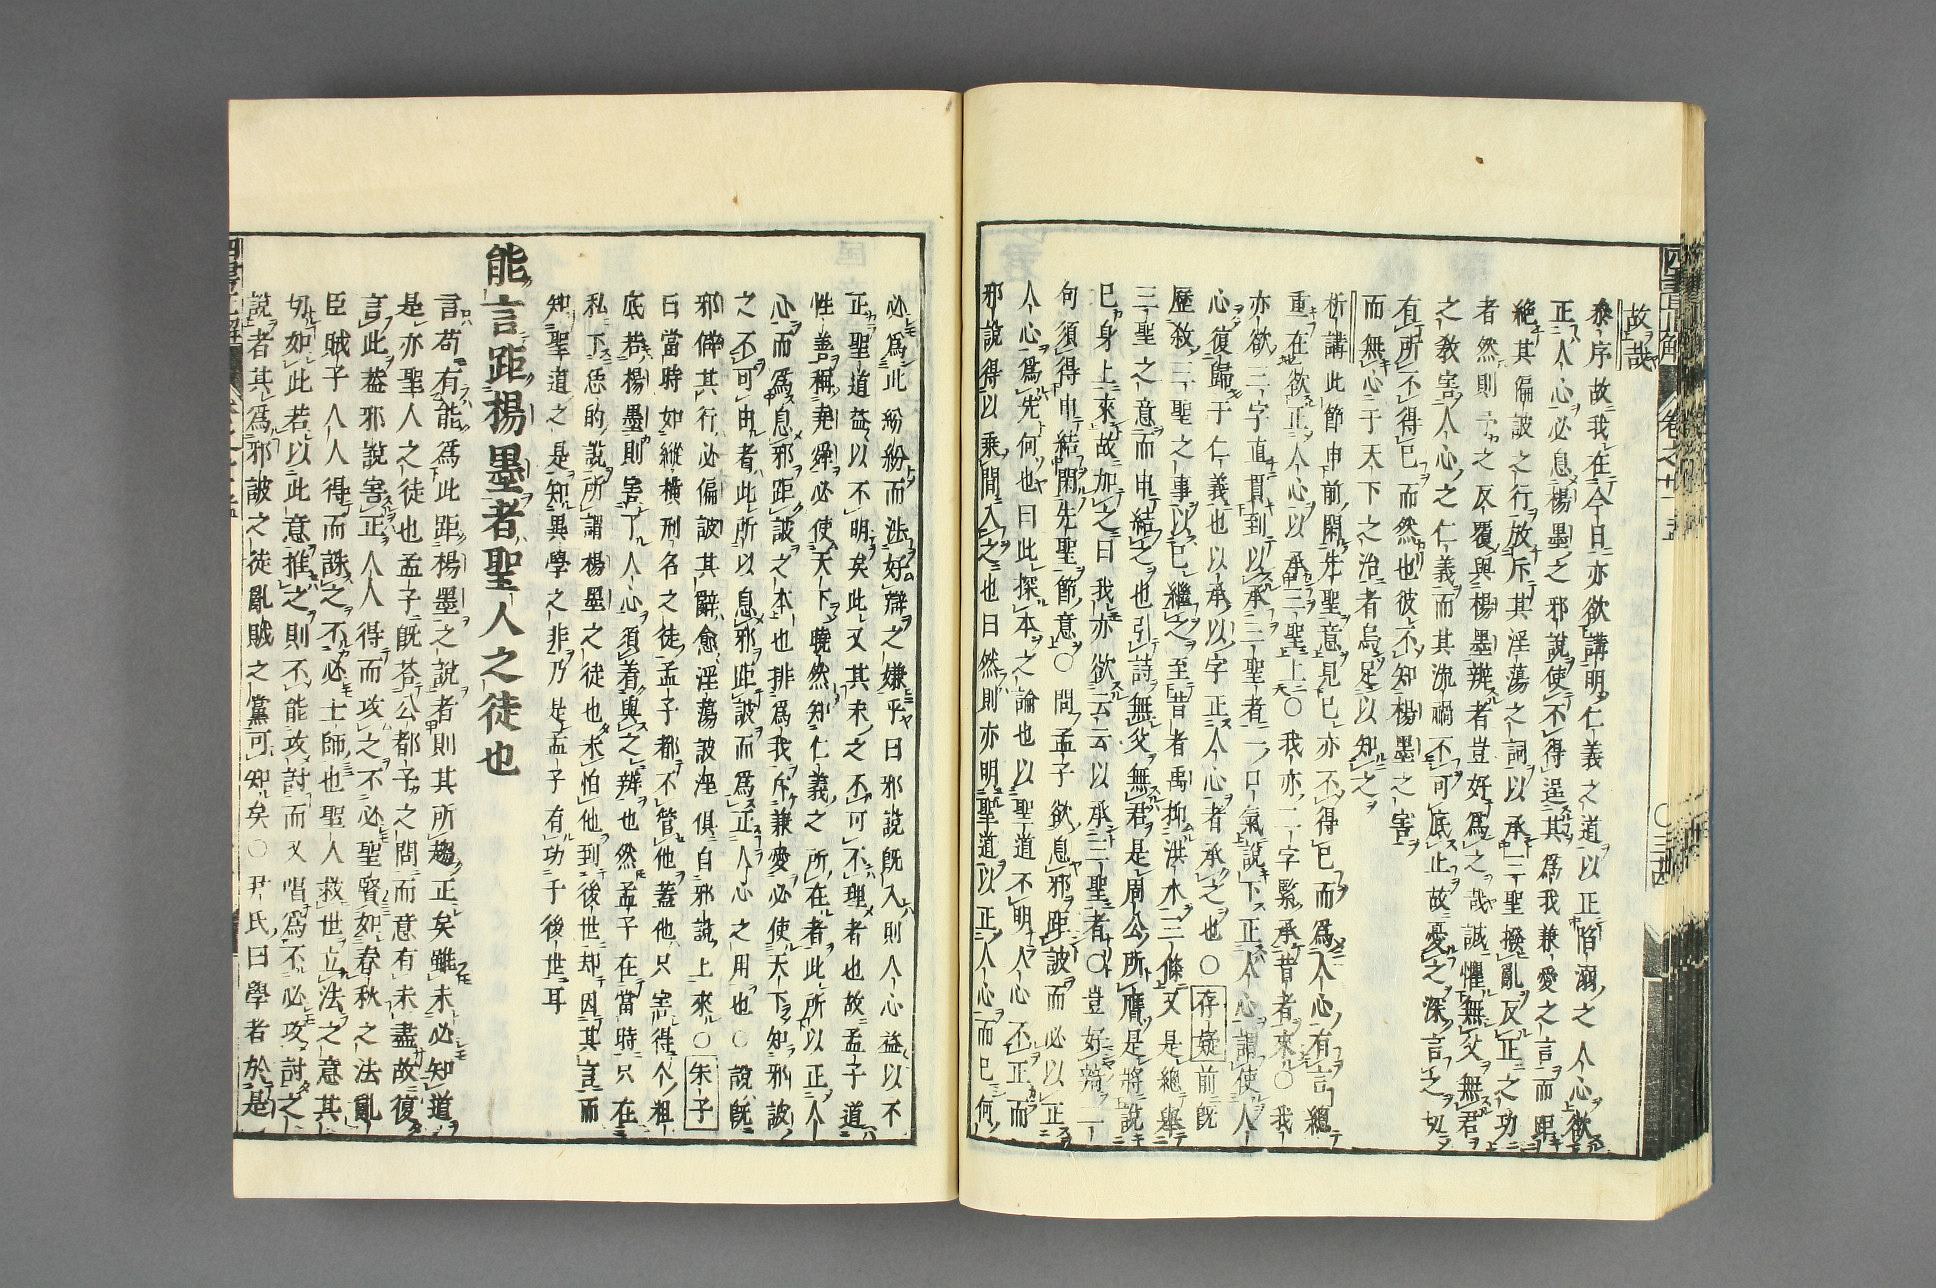 故哉
叅序故我在今日亦欲講明仁義之道以正陷溺之人心欲
正人心必息楊墨之邪說使不得逞其爲我兼愛之言而
絕其偏詖之行放斥其淫蕩之詞以承三聖撥亂反正之功
者然則予之反覆與楊墨辨者豈好爲之哉誠懼無父無君
之敎害人心之仁義而其流禍不可底止故憂之深言之切
有所不得已而然也彼不知楊墨之害
而無心于天下之治者烏足以知之
析講此節申前閑先聖意見已亦不得已而爲人心有言總
重在欲正人心以承三聖上○我亦二字緊承昔者來○我
亦欲三字直貫到以承三聖者一口氣說下正人心謂使人
心復歸于仁義也以承以字正人心者承之也○存疑前旣
歷敘三聖之事以已繼之至昔者禹抑洪水三條又是總舉
三聖之意而申結之也引詩無父無君是周公所膺是將說
已身上來故加之曰我亦欲云云以承三聖者○豈好辯一
何須得申結閑先聖節意○問孟子欲息邪距詖而必以正
人心爲先何也曰此探本之論也以聖道不明人心不正而
邪說得以乘間入之也曰然則亦明聖道以正人心而已何
必爲此紛紛而涉好辯之嫌乎曰邪說旣入則人心益以不
正聖道益以不明矣此又其末之不可不理者也故孟子道
性善稱堯舜必使天下曉然知仁義之所在者此所以正人
心而爲息邪距詖之本也排爲我斥兼愛必使天下知邪詖
之不可由者此所以息邪距詖而爲正人心之用也○說旣
邪僻其行必偏詖其辭愈淫蕩詖淫俱自邪說上來○朱子
曰當時如縱橫刑名之徒孟子都不管他蓋他只害得个粗
底若楊墨則害了人心須着與之辨也然孟子在當時只在
私下恁的說所謂楊墨之徒也未怕他到後世却因其言而
知聖道之是知異學之非乃是孟子有功于後世耳
能言距楊墨者聖人之徒也
言苟有能爲此距楊墨之說者則其所趨正矣雖未必知道
是亦聖人之徒也孟子旣荅公都子之問而意有未盡故復
言此葢邪說害正人人得而攻之不必聖賢如春秋之法亂
臣賊子人人得而誅之不必士師也聖人救世立法之意其
切如此若以此意推之則不能攻討而又唱爲不必攻討之
說者其爲邪詖之徒亂賊之黨可知矣○尹氏曰學者於是